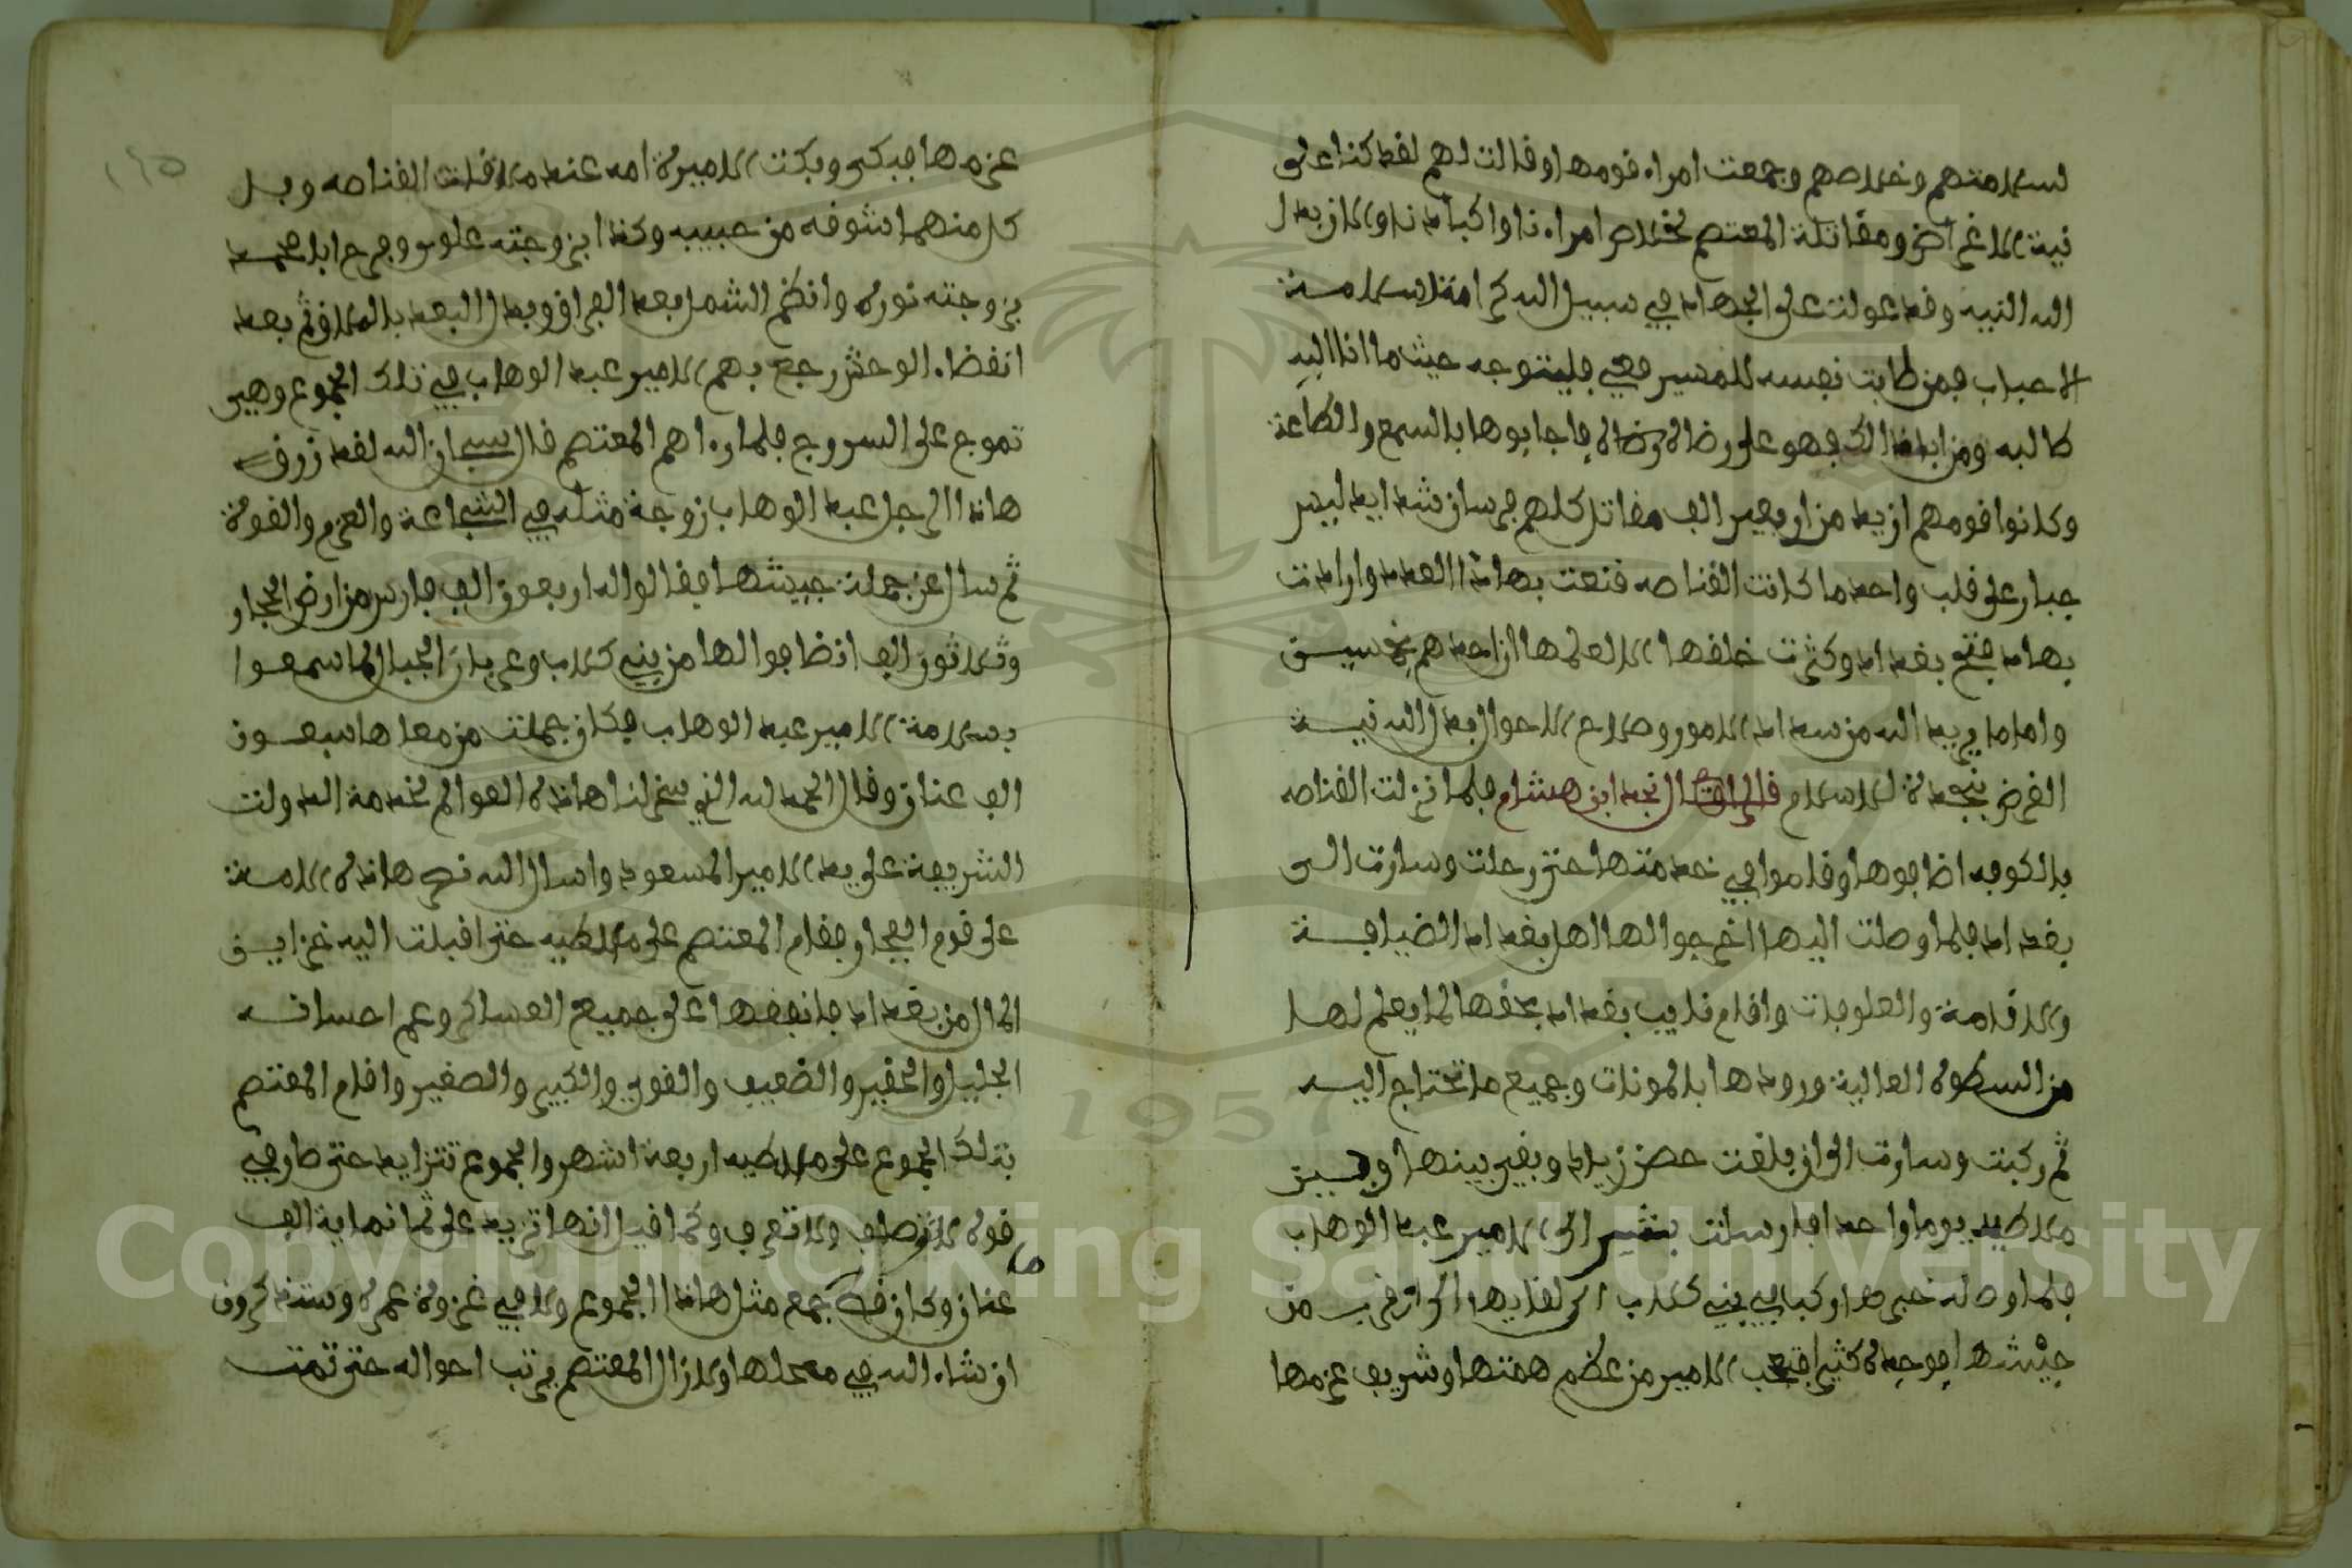 لسلامتهم وخلاصهم وجمعت امراء قومها وقالت لهم لقد كنا على
نية الاعراض ومقاتلة المعتصم لخلاص امراءنا واكبادنا والان بدل
الله النيه وقد عولت على الجهاد في سبيل الله كرامة لسلامة
الاحباب فمن طابت نفسه للمسير معي فليتوجه حيث ما انا اليه
طالبه ومن ابا ذالك فهو على رضاه فاجابوها بالسمع والطاعة
وكانوا قومهم ازيد من اربعين الف مقاتل كلهم فرسان شدايد ليس
جبار على قلب واحد ما كانت القناصه قنعت بهاذا العدد وارادت
بهاد فتح بغداد وكثرت خلفها الا لعلمها ان احدهم بخمسين
واما ما يريد الله من سداد الامور وصلاح الاحوال بدل الله نية
الغرض بنجدة الاسلام قال الراوي نجد ابن هشام فلما نزلت القناصه
بالكوفه اضافوها وقاموا في خدمتها حتى رحلت وسارت الى
بغداد فلما وصلت اليها اخرجوا لها اهل بغداد الضيافة
والاقامة والعلوفات واقام نايب بغداد بحقها لما يعلم لها
من السطوه العالية وزودها بالمونات وجميع ما تحتاج اليه
ثم ركبت وسارت الى ان بلغت حصن زياد وبقي بينها وبين
ملاطيه يوما واحدا فارسلت بشير الى الامير عبد الوهاب
فلما وصله خبرها ركبا في بني كلاب الى لقايها الى ان قرب من
جيشها فوجده كثيرا فتعجب الامير من عظم همتها وشريف عزمها
١٢٥
عزمها فبكى وبكت الاميرة امه عند ملاقات القناصه وبل
كل منهما شوقه من حبيبه وكذا ابزوجته علوس وفرح ابا محمد
بزوجته نوره وانظم الشمل بعد الفراق وبدل البعد بالتلاق ثم بعد
انقضاء الوحش رجع بهم الامير عبد الوهاب في تلك الجموع وهي
تموج على السروج فلما راهم المعتصم قال سبحان الله لقد رزق
هاذا الرجل عبد الوهاب زوجة مثله في الشجاعة والعزم والقوة
ثم سال عن جملة جيشها فقالوا له اربعون الف فارس من ارض الحجاز
وثلاثون الف انضافوا لها من بني كلاب وعربان الجبال لما سمعوا
بسلامة الامير عبد الوهاب فكان جملت من معها سبعون
الف عنان وقال الحمد لله الذي سخر لنا هاذه العوالم لخدمة الدولت
الشريعة على يد الامير المسعود واسال الله نصر هاذه الامة
على قوم الفجار وقام المعتصم على ملاطيه حتى اقبلت اليه خزاين
المال من بغداد فانفقها على جميع العساكر وعم احسانه
الجليل والحقير والضعيف والقوي والكبير والصغير واقام المعتصم
بتلك الجموع على ملاطيه اربعة اشهر والجموع تتزايد حتى صار في
قوه لا توصف ولا تعرف وكما قيل انها تزيد على ثمانماية الف
عنان وما كان قط جمع مثل هاذا الجموع ولا في غزوة عمره وستذكرون
ان شاء الله في محلها ولا زال المعتصم يرتب احواله حتى تمت